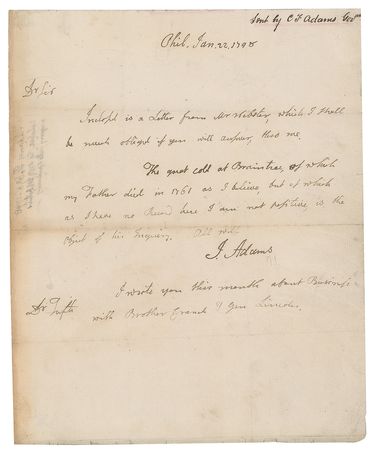 Sent by C F Adams
Phil. Jan. 22. 1798
Dr Sir
Inclosed is a Letter from Mr Webster, which I shall
be much obliged if you will answer, thro me.
The great cold at Braintree, of which
my Father died in 1761 as I believe, but of which
as I have no Record here I am not positive, is the
object of his Enquiry.
J. Adams
I wrote you this month about Business
Dr Tufts
with Brother Cranch & Gen Lincoln.